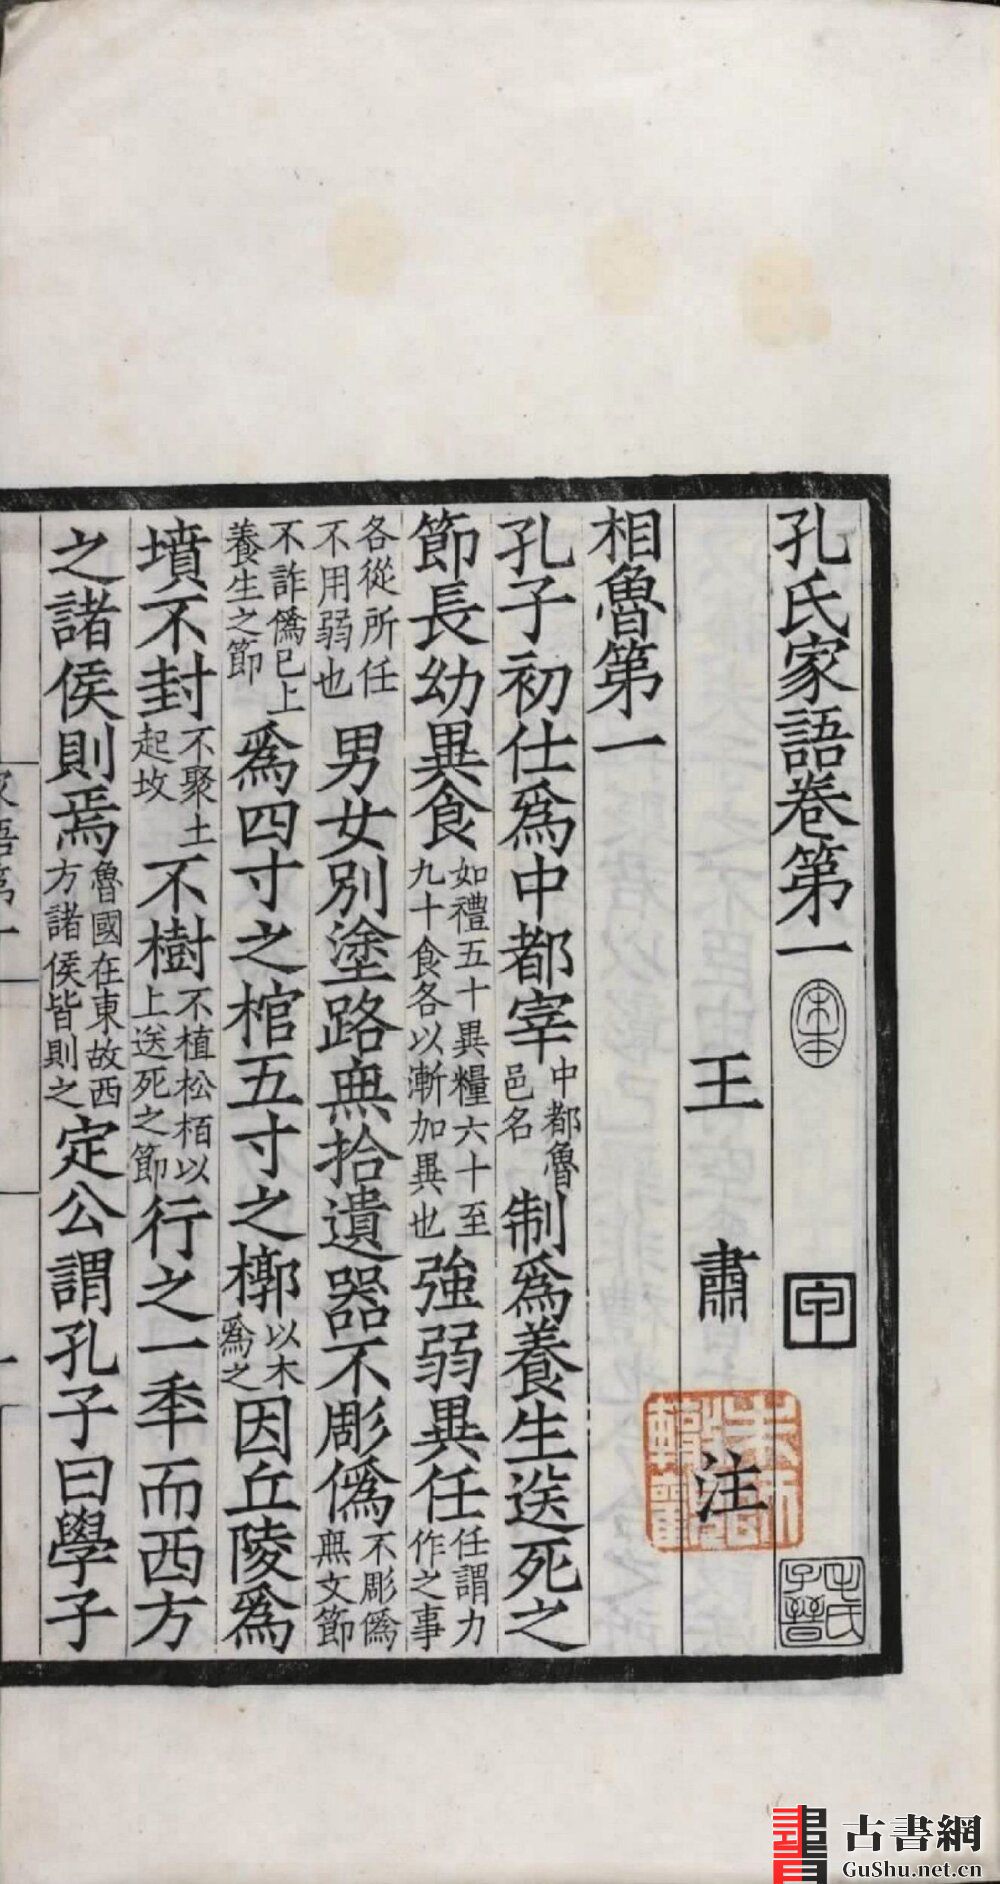 孔氏家語卷第一
王肅注
相魯第一
孔子初仕爲中都宰中都魯邑名制爲養生送死之
節長幼異食如禮五十異糧六十至九十食各以漸加異也強弱異任任謂力作之事
各從所任不用弱也男女別塗路無拾遺器不彫僞不彫僞無文節
不詐僞已上養生之節爲四寸之棺五寸之槨以木爲之因丘陵爲
墳不封不聚土起坟不樹不植松栢以上送死之節行之一秊而西方
之諸侯則焉魯國在東故西方諸侯皆則之定公謂孔子曰學子
古書網
GuShu.net.cn